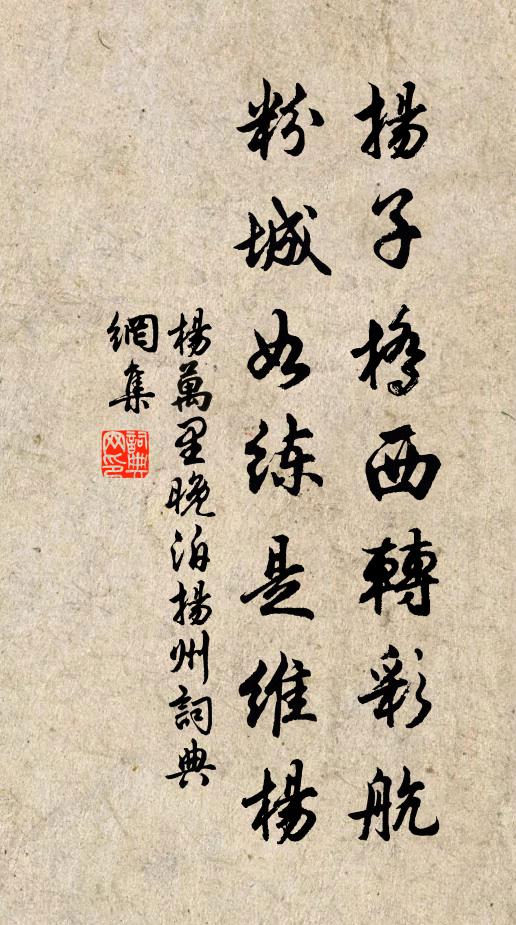 揚子橋西轉彩航
粉城如練是維楊
楊萬里晚泊揚州詞典
網集
詞典
网印